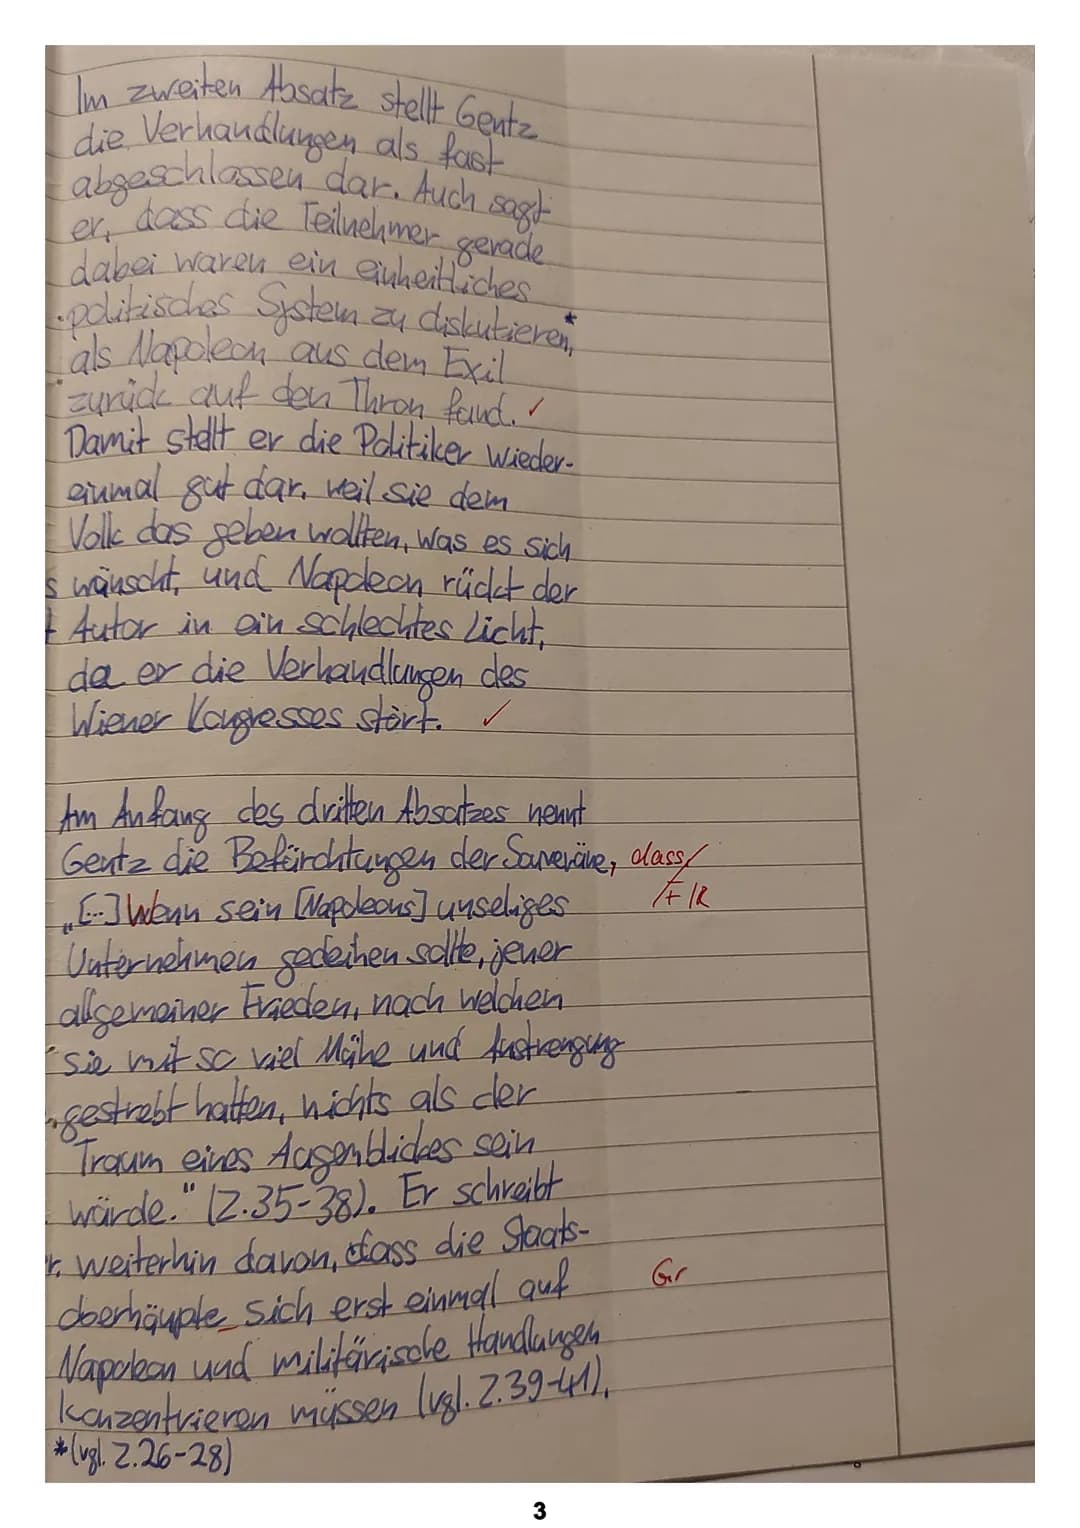 Im zweiten Absatz stellt Gentz
die Verhandlungen als fast
abgeschlossen dar. Auch sagt
er, dass die Teilnehmer gerade
dabei waren ein einheitliches
politisches System zu diskutieren,*
als Napoleon aus dem Exil
zurück auf den Thron fand. ✓
Damit stellt er die Politiker wieder-
einmal gut dar, weil sie dem
Volk das geben wollten, was es sich
s wünscht, und Napoleon rückt der
t Autor in ein schlechtes Licht,
da er die Verhandlungen des
Wiener Kongresses stört. ✓
Am Anfang des dritten Absatzes nennt
Gentz die Befürchtungen der Souveräne, dass/
„[...] Wenn sein [Napoleons] unseliges F/R
Unternehmen gedeihen sollte, jener
allgemeiner Frieden, nach welchen
sie mit so viel Mühe und Anstrengung
gestrebt hatten, nichts als der
Traum eines Augenblickes sein
würde." (Z.35-38). Er schreibt
r. weiterhin davon, dass die Staats-
oberhäupte sich erst einmal auf Gr
Napoleon und militärische Handlungen
konzentrieren müssen (vgl. Z.39-41).
*(vgl. Z.26-28)
3